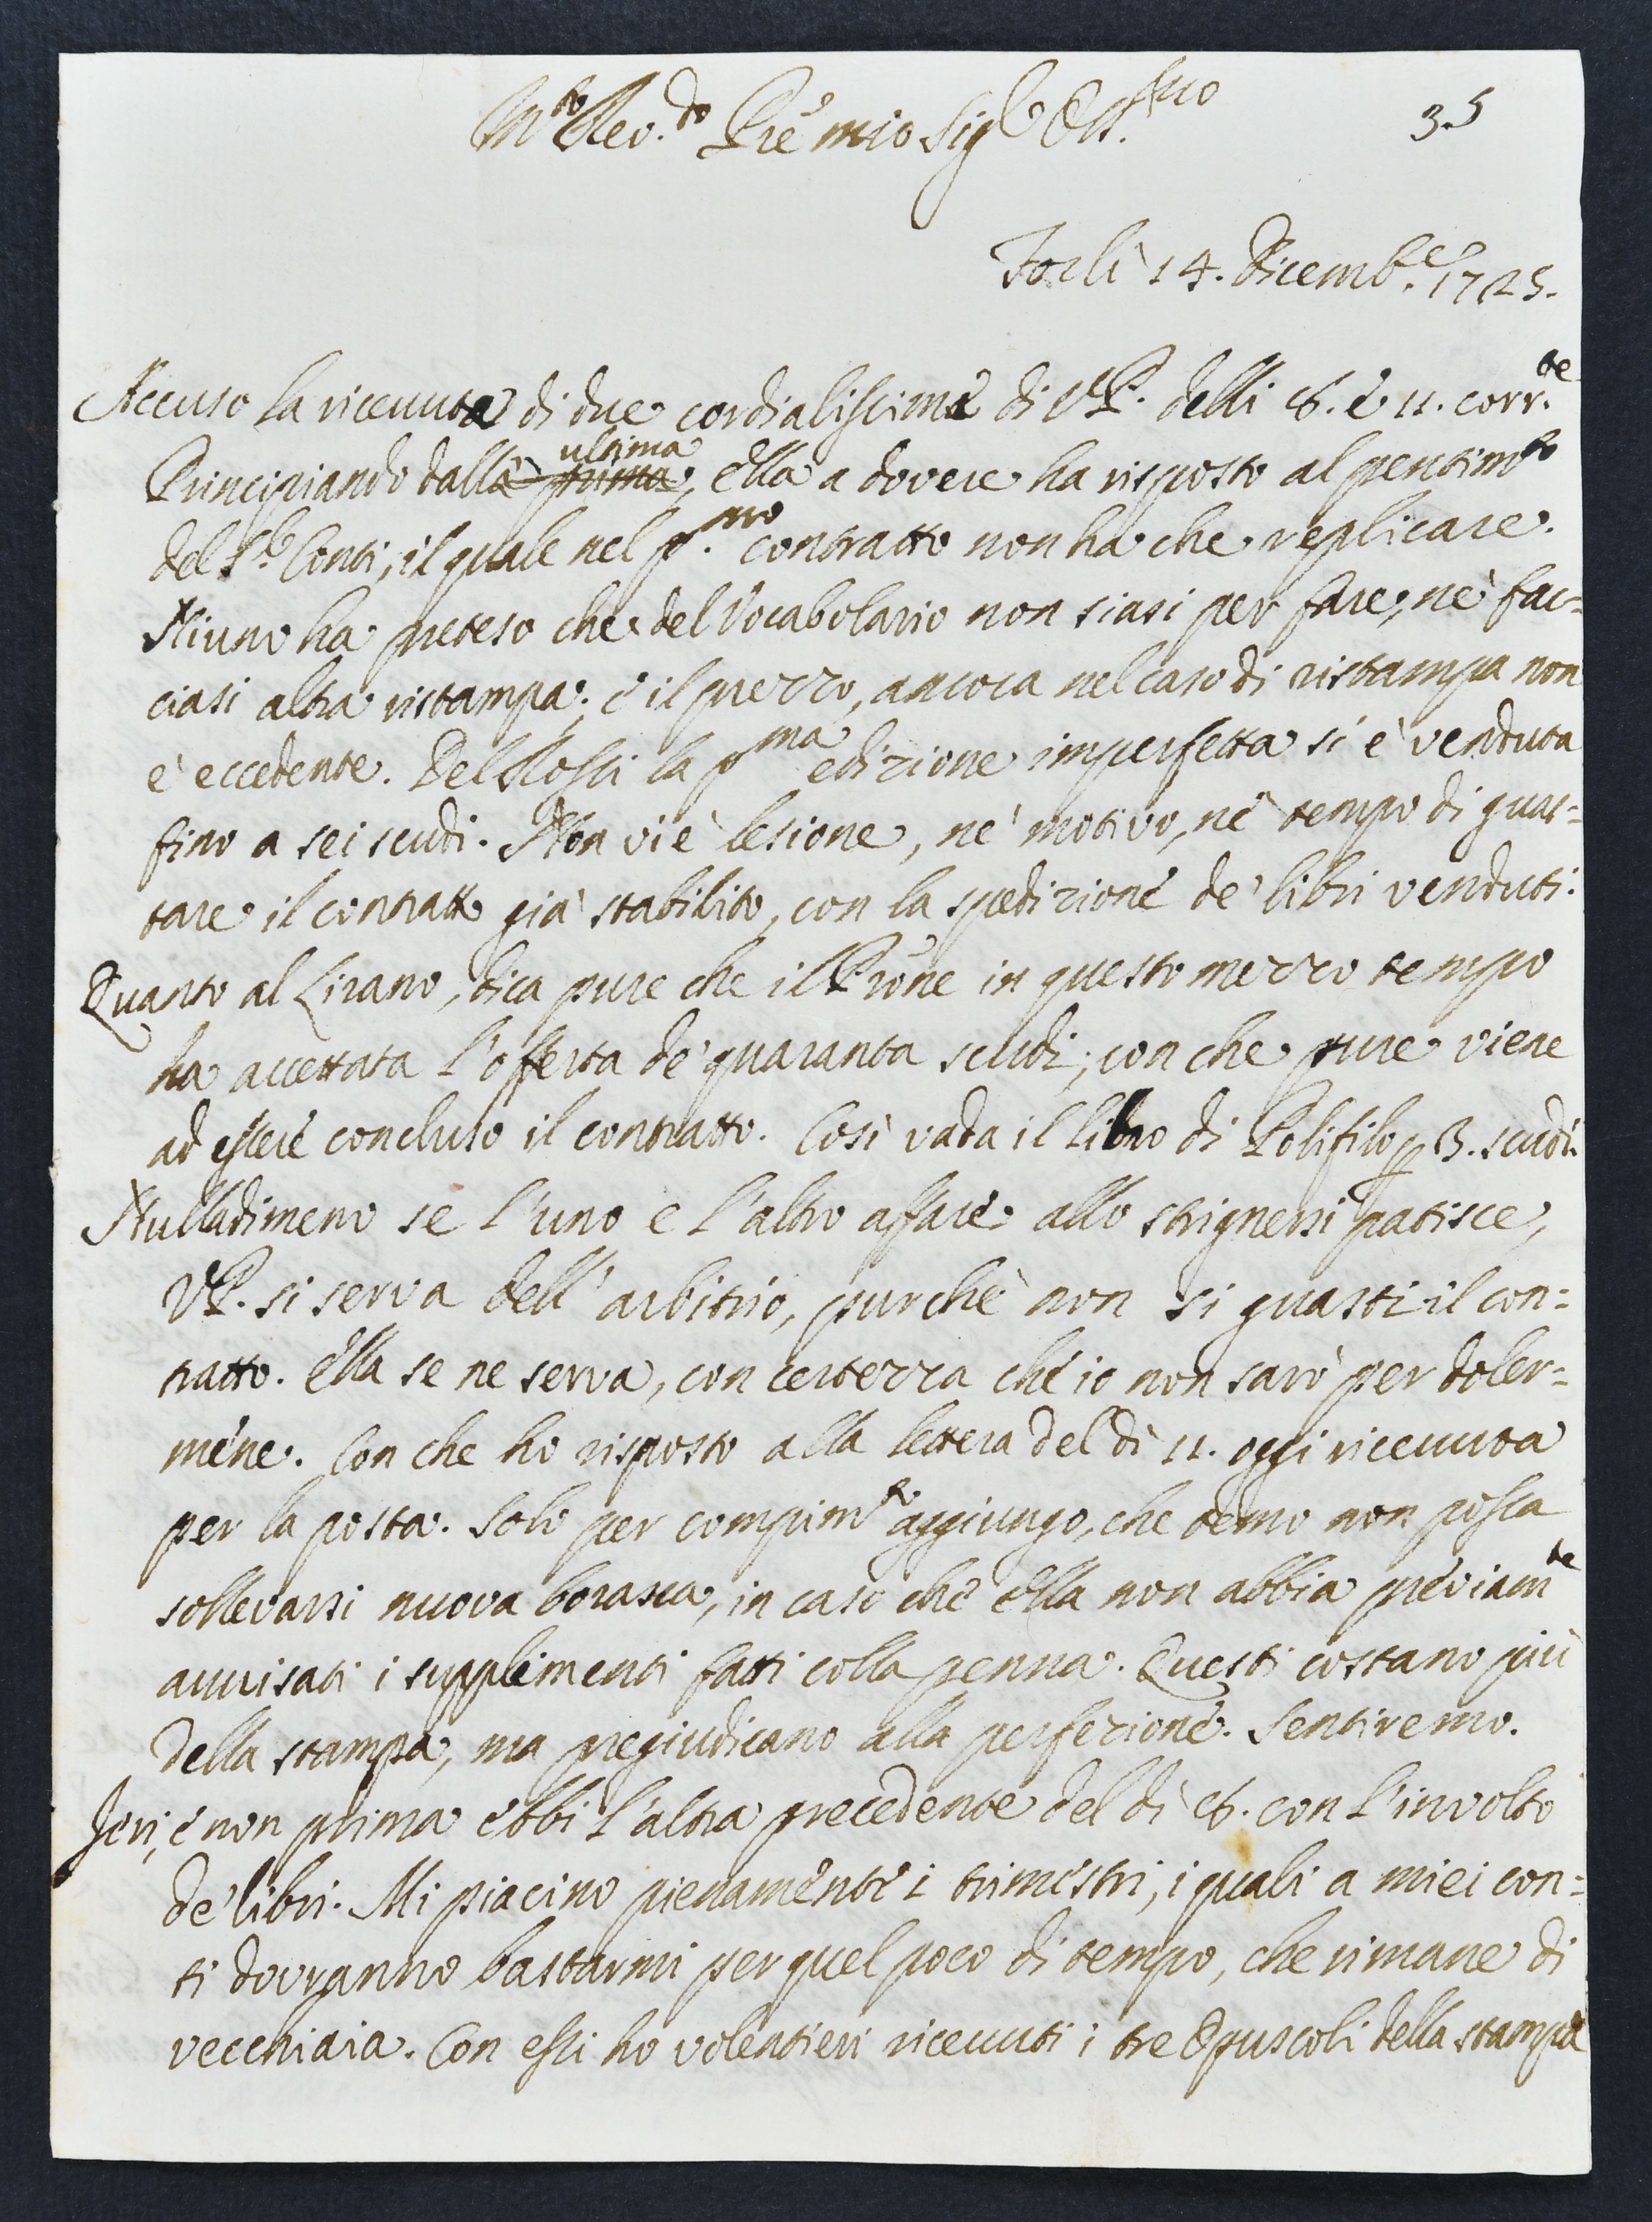 M.to Rev.do Prẽ mio Sig.r Oss.mo 35
Forlì 14. Dicemb.e 1725.
Accuso la ricevuta di due cordialissime di V.P. delli 6. e 11. corr.te
Principiando dalla prima ultima, ella a dovere ha risposto al pentim.to
del S.r Conti, il quale nel p.mo contratto non ha che replicare.
Niuno ha preteso che del Vocabolario non siasi per fare, nè fac=
ciasi altra ristampa; e il prezzo, ancora nel caso di ristampa non
è eccedente. Del Rossi la p.ma edizione imperfetta si è venduta
fino a sei scudi. Non vi è lesione, nè motivo, nè tempo di guas=
tare il contratto già stabilito, con la spedizione de' libri venduti.
Quanto al Lirano, dica pure che il Prone in questo mezzo tempo
ha accettata l'offerta de' quaranta scudi; con che pure viene
ad essere concluso il contratto. Così vada il libro di Polifilo p 3. scudi.
Nulladimeno se l'uno e l'altro affare allo strignersi patisce,
V.P. si serva dell'arbitrio, purchè non si guasti il con=
tratto. Ella se ne serva, con certezza che io non sarò per doler=
mene. Con che ho risposto alla lettera del dì 11. oggi ricevuta
per la posta. Solo per compim.to aggiungo, che temo non possa
sollevarsi nuova borasca, in caso che ella non abbia previam.te
avvisati i supplimenti fatti colla penna. Questi costano più
della stampa, ma pregiudicano alla perfezione. Sentiremo.
Jeri, e non prima ebbi l'altra precedente del dì 6. con l'involto
de' libri. Mi piacino pienamente i trimestri, i quali a miei con=
ti dovranno bastarmi per quel poco di tempo, che rimane di
vecchiaia. Con essi ho volentieri ricevuti i tre Opuscoli della stampa